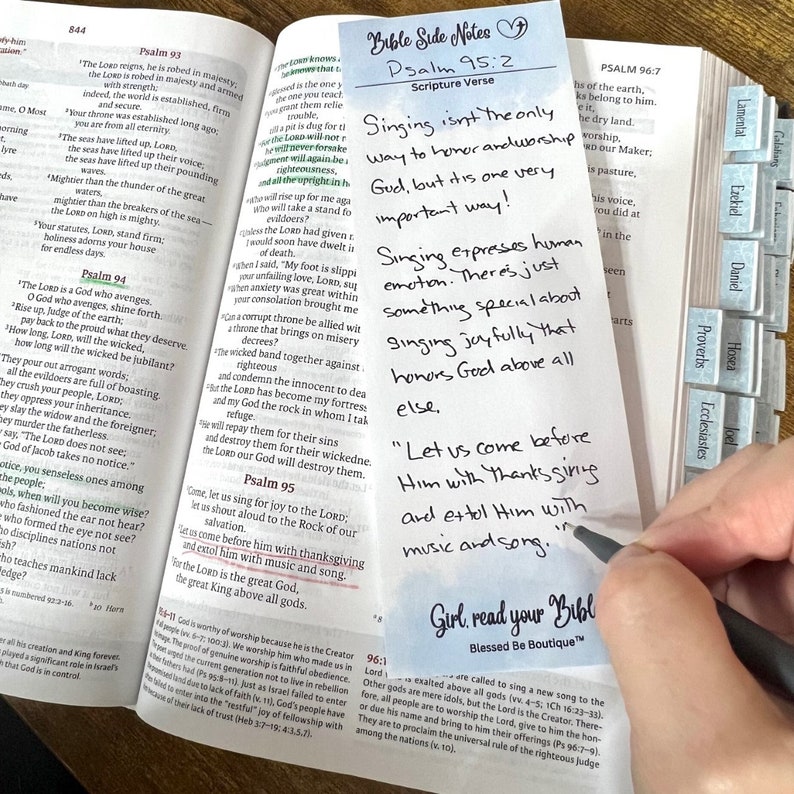 844
Psalm 93
¹The LORD reigns, he is robed in majesty;
the LORD is robed in majesty and armed
with strength;
indeed, the world is established, firm
and secure.
²Your throne was established long ago;
you are from all eternity.
³The seas have lifted up, LORD,
the seas have lifted up their voice;
the seas have lifted up their pounding
waves.
⁴Mightier than the thunder of the great
waters,
mightier than the breakers of the sea —
the LORD on high is mighty.
⁵Your statutes, LORD, stand firm;
holiness adorns your house
for endless days.
Psalm 94
¹The LORD is a God who avenges.
O God who avenges, shine forth.
²Rise up, Judge of the earth;
pay back to the proud what they deserve.
³How long, LORD, will the wicked,
how long will the wicked be jubilant?
They pour out arrogant words;
all the evildoers are full of boasting.
They crush your people, LORD;
they oppress your inheritance.
slay the widow and the foreigner;
they murder the fatherless.
say, "The LORD does not see;
God of Jacob takes no notice."
notice, you senseless ones among
the people;
when will you become wise?
who fashioned the ear not hear?
who formed the eye not see?
who disciplines nations not
who teaches mankind lack
The LORD knows
he knows that
Blessed is the one
the one you teach
you grant them relie
trouble,
till a pit is dug for
For the LORD will not
he will never forsake
Judgment will again be
righteousness,
and all the upright in
Who will rise up for me
Who will take a stand fo
evildoers?
Unless the LORD had given
I would soon have dwelt
of death.
When I said, "My foot is slippi
your unfailing love, LORD,
When anxiety was great within
your consolation brought me
Can a corrupt throne be allied
a throne that brings on misery
decrees?
The wicked band together against
righteous
and condemn the innocent to dea
But the LORD has become my fortress
and my God the rock in whom I tak
refuge.
He will repay them for their sins
and destroy them for their wickedne
the LORD our God will destroy them.
Psalm 95
¹Come, let us sing for joy to the LORD;
let us shout aloud to the Rock of our
salvation.
²Let us come before him with thanksgiving
and extol him with music and song.
³For the LORD is the great God,
the great King above all gods.
95:6–11 God is worthy of worship because he is the Creator
of all people (vv. 6–7; 100:3). We worship him who made us in
his image. The proof of genuine worship is faithful obedience.
The poet urged the current generation not to live in rebellion
as their fathers had (Ps 95:8–11). Just as Israel failed to enter
the promised land due to lack of faith (v. 11), God's people have
often failed to enter into the "restful" joy of fellowship with
him because of their lack of trust (Heb 3:7–19; 4:3,5,7).
Bible Side Notes
Psalm 95:2
Scripture Verse
Singing isn't the only
way to honor and worship
God, but it is one very
important way!
Singing expresses human
emotion. There's just
something special about
singing joyfully that
honors God above all
else.
"Let us come before
Him with thanksgiving
and extol Him with
music and song."
Girl, read your Bibl
Blessed Be Boutique™
PSALM 96:7
of the earth,
belong to him.
the dry land.
worship,
our Maker;
pasture,
his voice,
you did at
in the
are called to sing a new song to the
Lord
is exalted above all gods (vv. 4–5; 1Ch 16:23–33).
Other gods are mere idols, but the Lord is the Creator. There-
fore, all people are to worship the Lord, give to him the hon-
or due his name and bring to him their offerings (Ps 96:7–9).
They are to proclaim the universal rule of the righteous Judge
among the nations (v. 10).
Lamentat
Ezekiel
Daniel
Proverbs
Hosea
Ecclesiastes
Joel
Galatians